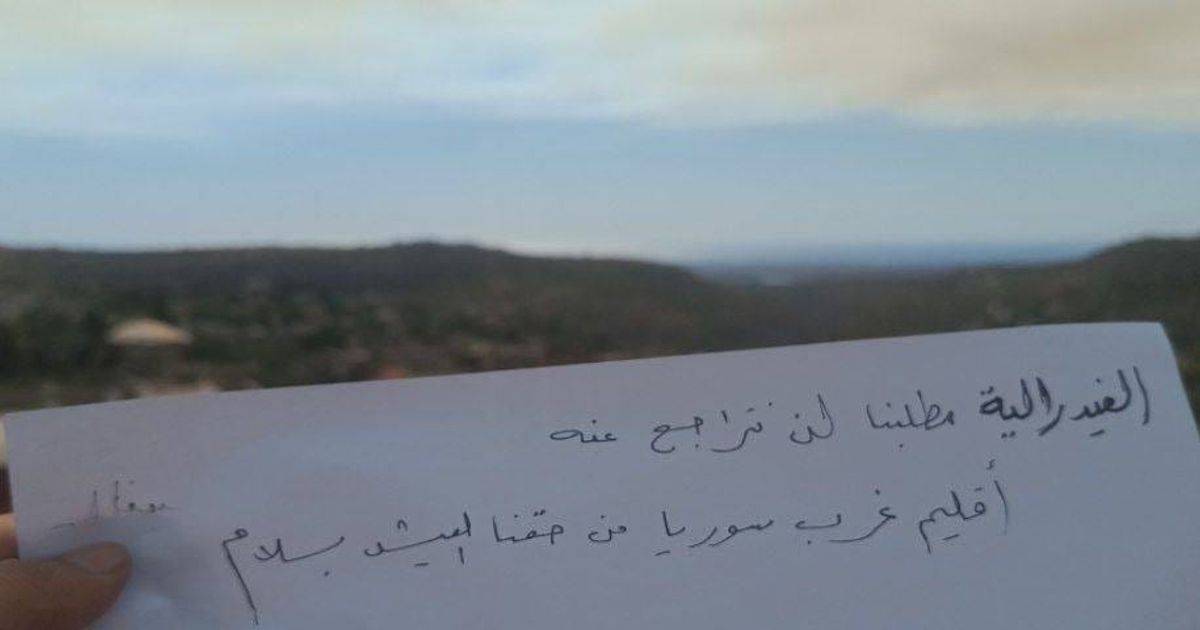 الفيدرالية مطلبنا لن نتراجع عنه
أقليم غرب سوريا من حقنا العيش بسلام